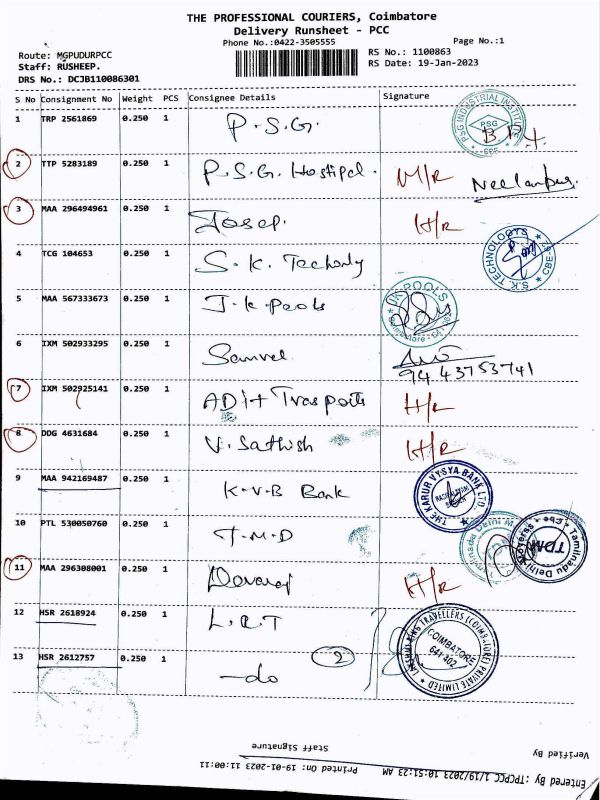 THE PROFESSIONAL COURIERS, Coimbatore
Delivery Runsheet - PCC
Phone No.:0422-3505555
Page No.:1
Route: MGPUDURPCC
RS No.: 1100863
Staff: RUSHEEP.
RS Date: 19-Jan-2023
DRS No.: DCJB110086301
S No Consignment No Weight PCS Consignee Details Signature
1 TRP 2561869 0.250 1 P.S.G. PSG INDUSTRIAL INSTITUTE PSG
2 TTP 5283189 0.250 1 P.S.G. Hostipel. M/R Neelambur
3 MAA 296494961 0.250 1 Josep. H/R
4 TCG 104653 0.250 1 S.K. S.K. TECHNOLOGYS CBE
5 MAA 567333673 0.250 1 J.K Pools JK POOLS Coimbatore
6 IXM 502933295 0.250 1 Samvel 94 43753741
7 IXM 502925141 0.250 1 H/R
8 DDG 4631684 0.250 1 V. Sathish H/R
9 MAA 942169487 0.250 1 K.V.B Bank THE KARUR VYSYA BANK LTD.
10 PTL 530050760 0.250 1 T.M.D Tamilnadu Delhi TDM
11 MAA 296308001 0.250 1 H/R
12 HSR 2618924 0.250 1 L.R.T TRAVELLERS (COIMBATORE) PRIVATE LIMITED COIMBATORE 641 402
13 HSR 2612757 0.250 1 -do 2
Staff Signature
Verified By
Printed On: 19-01-2023 11:00:11
Entered By : TPCPCC 1/19/2023 10:51:23 AM